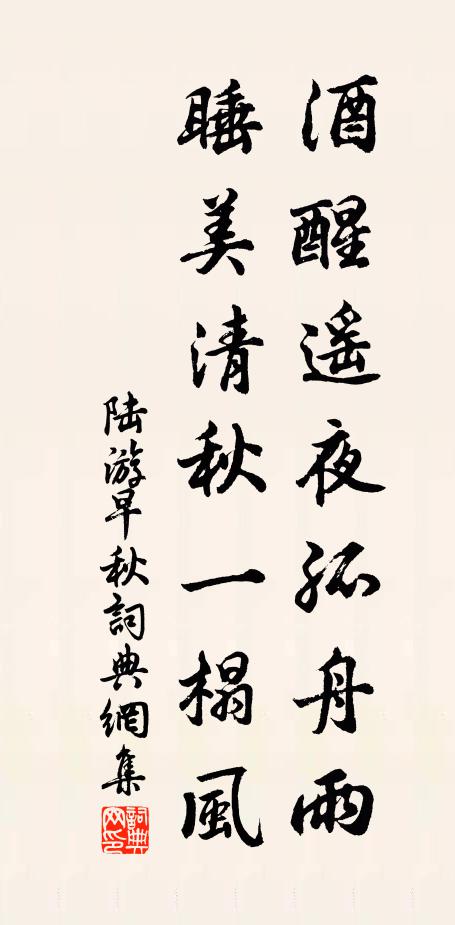 酒醒遥夜孤舟雨
睡美清秋一榻風
陆游早秋詞典網集
詞典网印